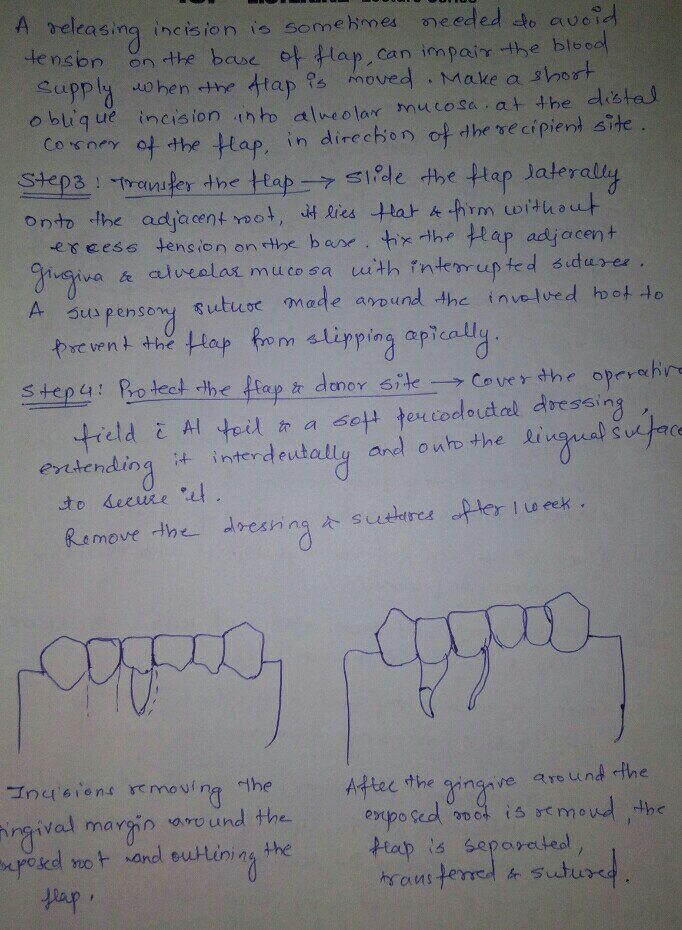 A releasing incision is sometimes needed to avoid
tension on the base of flap, can impair the blood
supply when the flap is moved. Make a short
oblique incision into alveolar mucosa at the distal
corner of the flap, in direction of the recipient site.
Step3: Transfer the flap → Slide the flap laterally
onto the adjacent root, it lies flat & firm without
excess tension on the base. fix the flap adjacent
gingiva & alveolar mucosa with interrupted sutures.
A suspensory suture made around the involved root to
prevent the flap from slipping apically.
Step4: Protect the flap & donor site → Cover the operative
field c̄ Al foil & a soft periodontal dressing,
extending it interdentally and onto the lingual surface
to secure it.
Remove the dressing & sutures after 1 week.
Incisions removing the
gingival margin around the
exposed root and outlining the
flap.
After the gingive around the
exposed root is removd, the
flap is separated,
transferred & sutured.